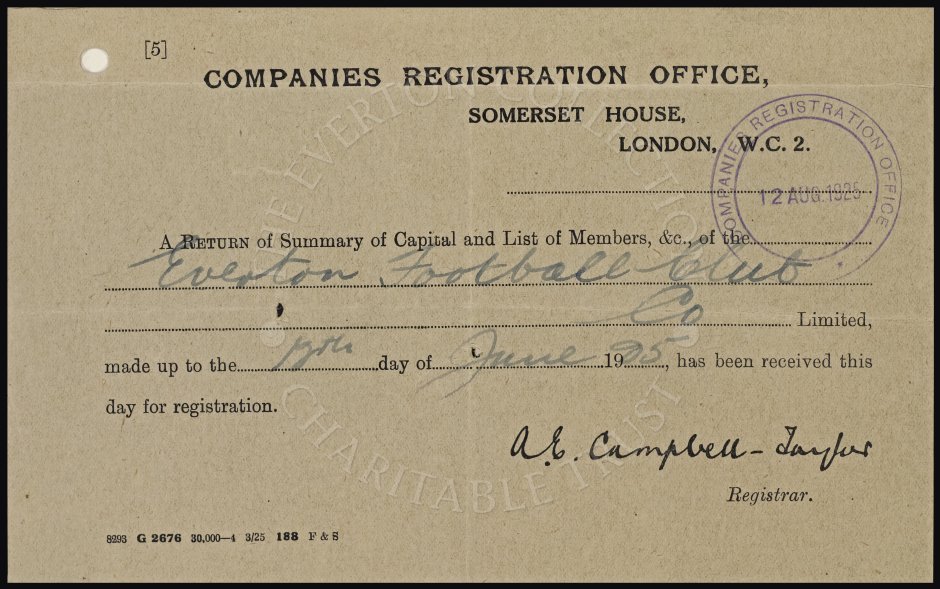 [5]
COMPANIES REGISTRATION OFFICE,
SOMERSET HOUSE,
LONDON, W.C. 2.
COMPANIES REGISTRATION OFFICE
12 AUG. 1925
A RETURN of Summary of Capital and List of Members, &c., of the
Everton Football Club
Co Limited,
made up to the day of June 1925, has been received this
day for registration.
A. E. Campbell-Taylor
Registrar.
8293 G 2676 30,000—4 3/25 188 F & S
THE EVERTON COLLECTION
CHARITABLE TRUST